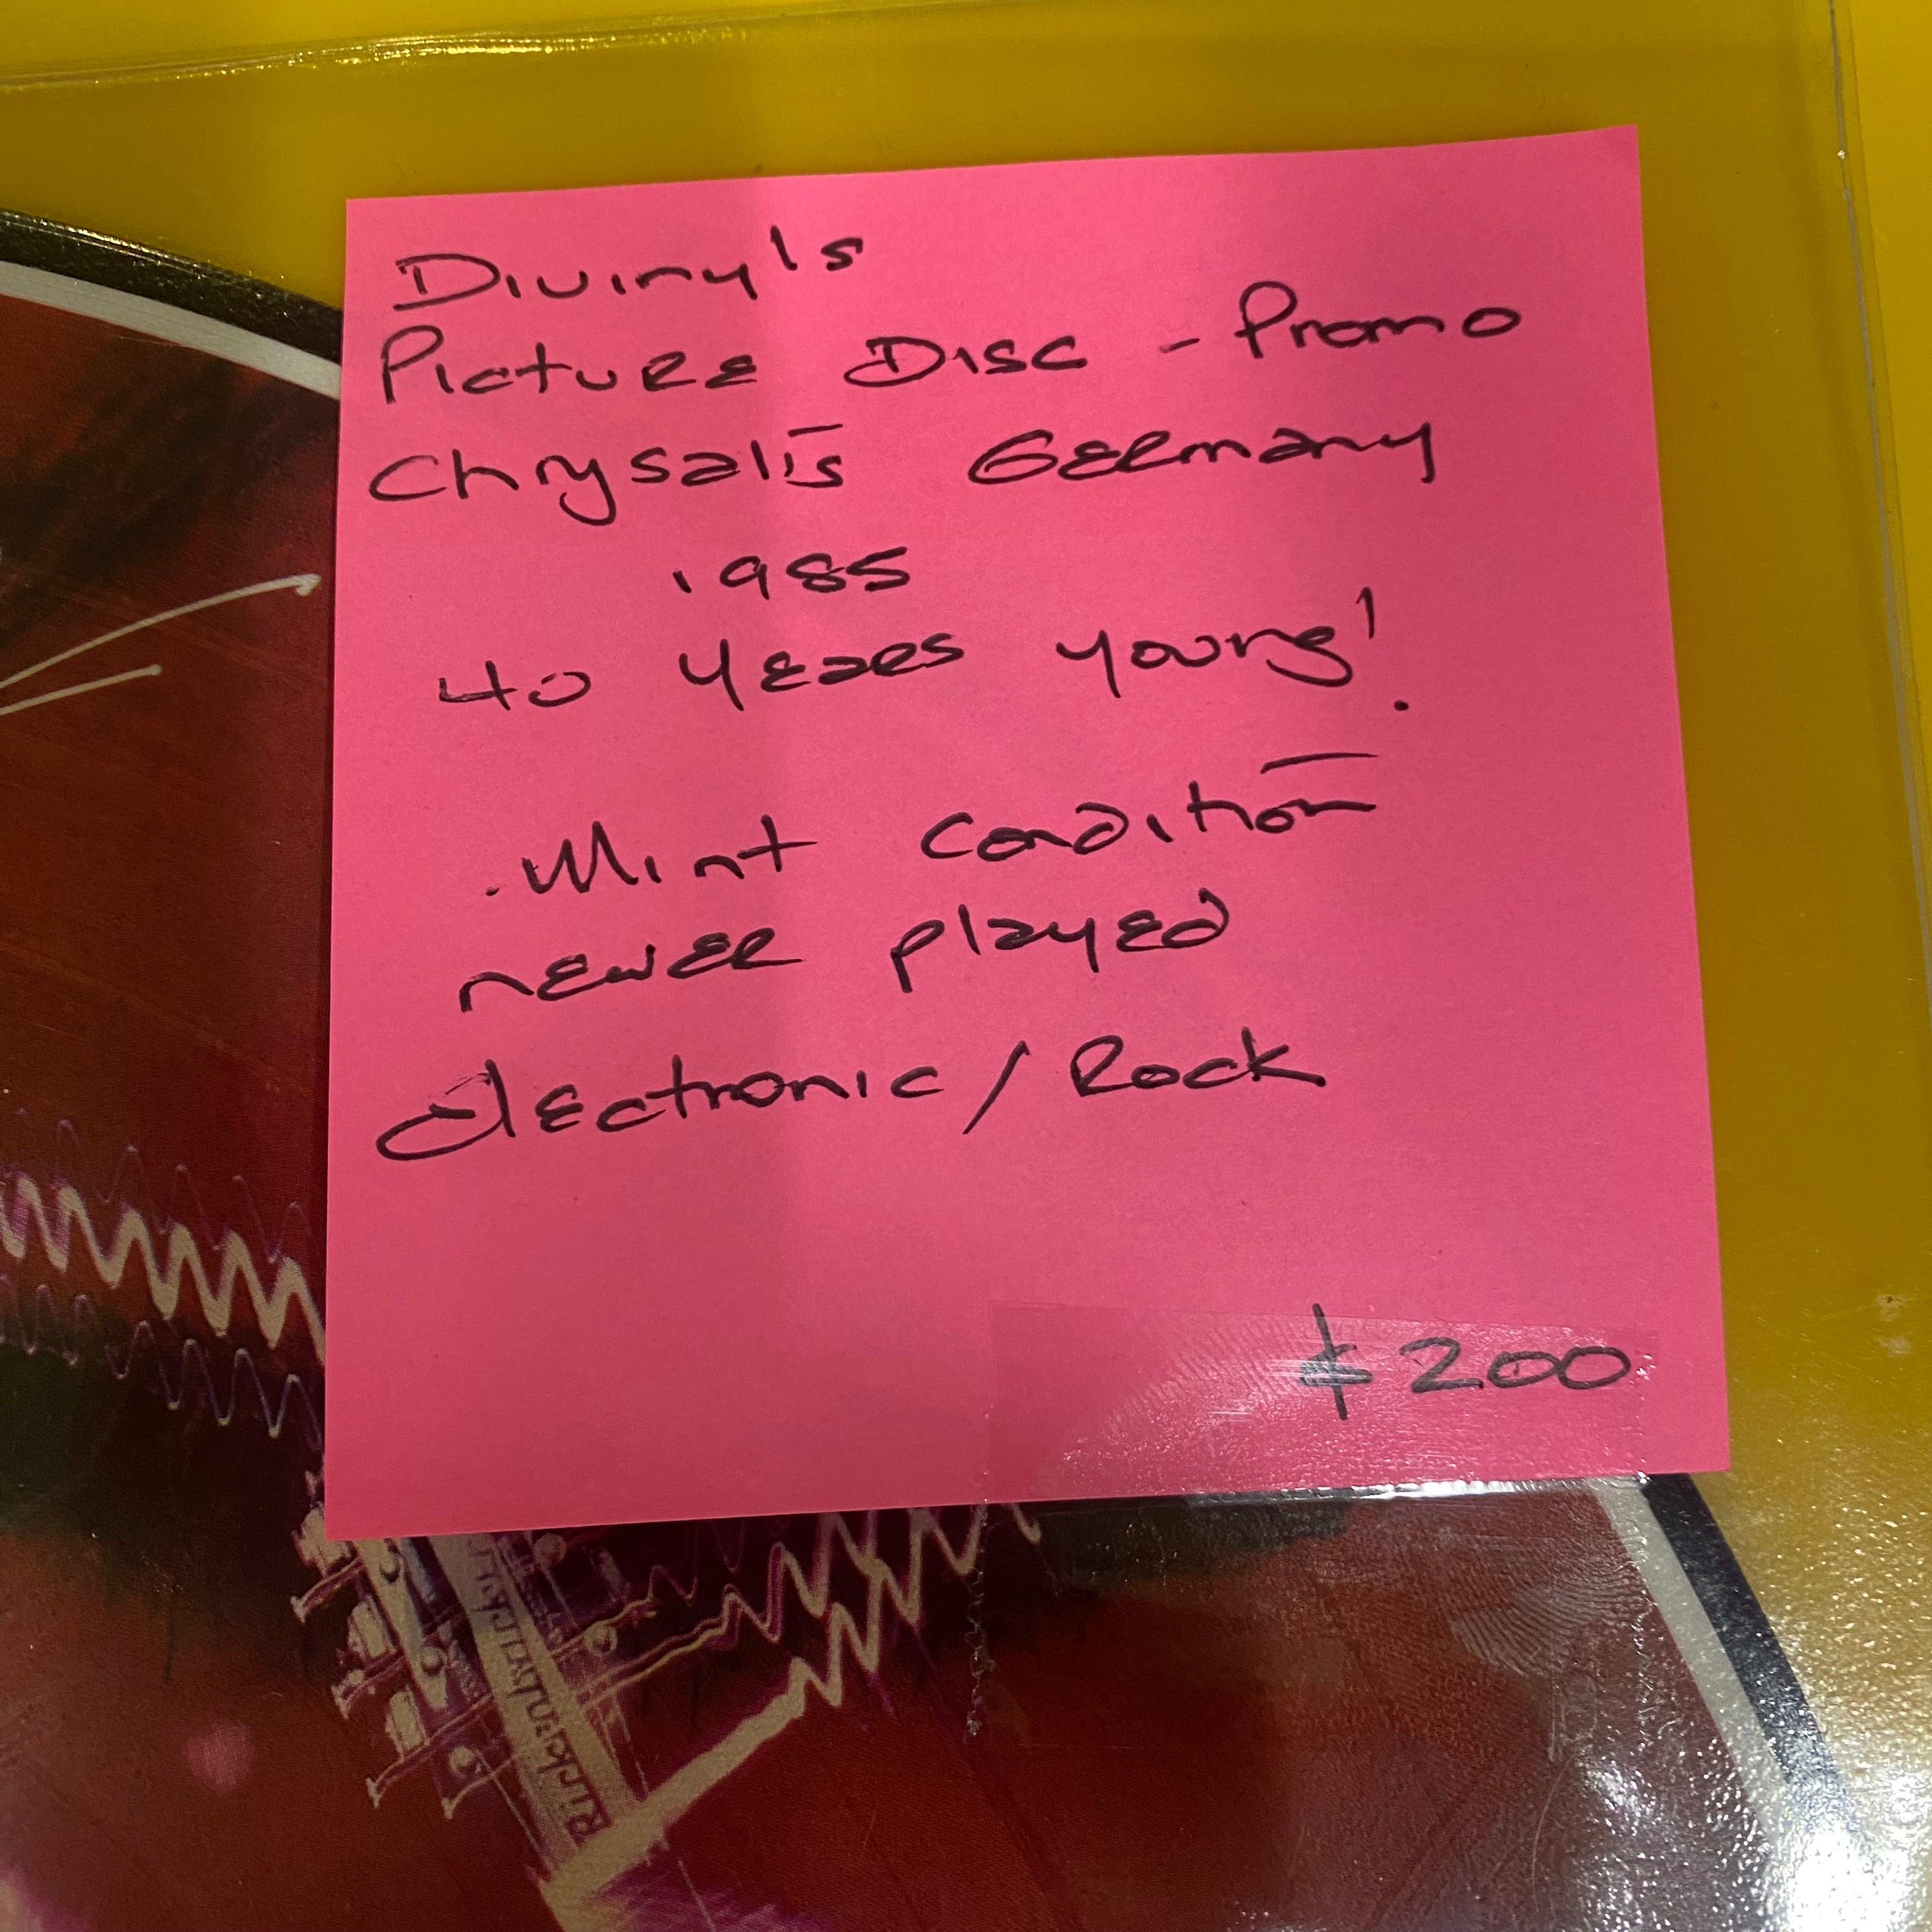 Divinyl's
Picture Disc - Promo
Chrysalis Germany
1985
40 years young!
. Mint condition
never played
electronic / Rock
$200